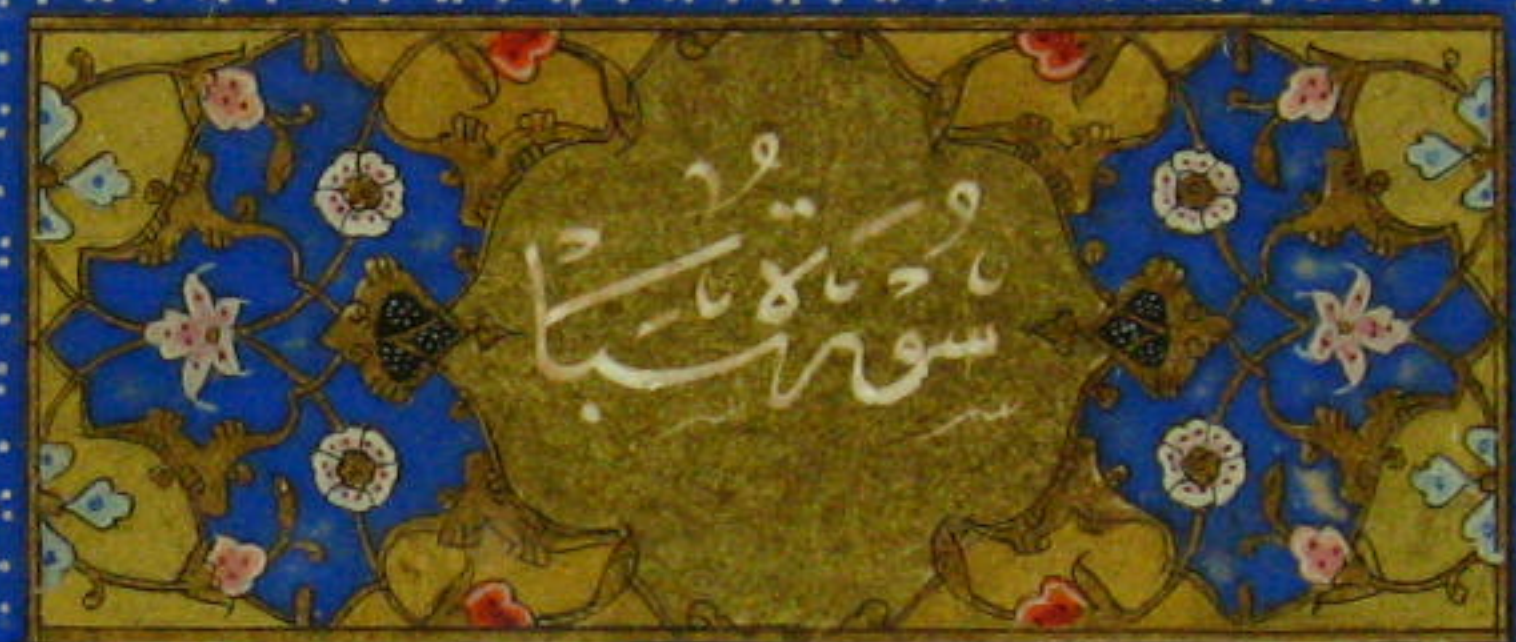 سُورَةُ سَبَأ